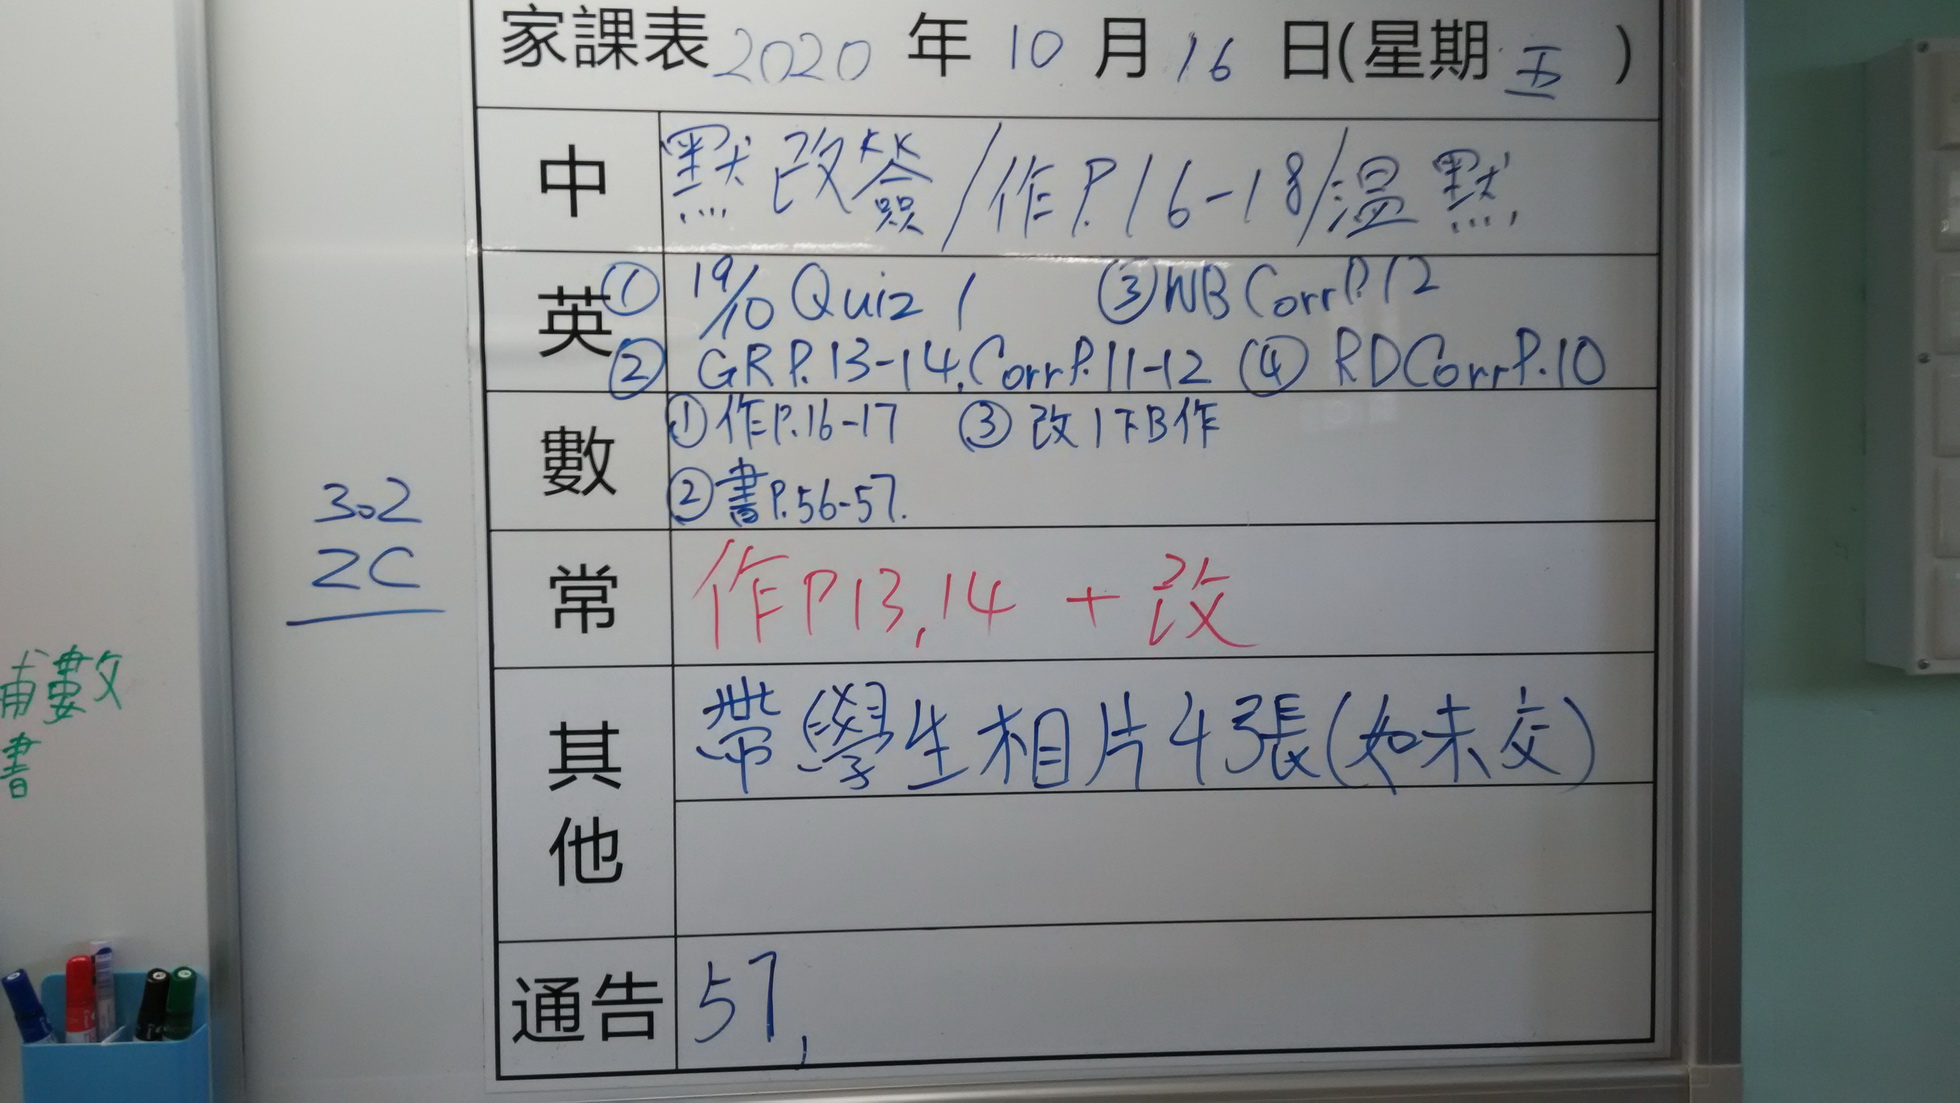 家課表 2020 年 10 月 16 日(星期 五 )
中 默改簽/作P.16-18/溫默
英 ① 19/10 Quiz 1 ③ WB Corr P.12
② GR P.13-14, Corr P.11-12 ④ RD Corr P.10
數 ① 作P.16-17 ③ 改1下B作
② 書P.56-57.
常 作P13,14 + 改
其他 帶學生相片4張(如未交)
通告 57,
302
2C
補數
書